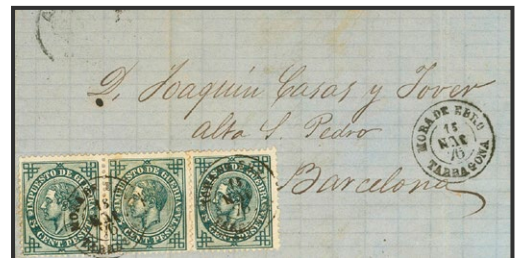 D. Joaquín Casas y Jover
Alta S. Pedro
Barcelona
MORA DE EBRO
15
NOV
76
TARRAGONA
IMPUESTO DE GUERRA
5 CENT. PESETA
IMPUESTO DE GUERRA
5 CENT. PESETA
IMPUESTO DE GUERRA
5 CENT. PESETA